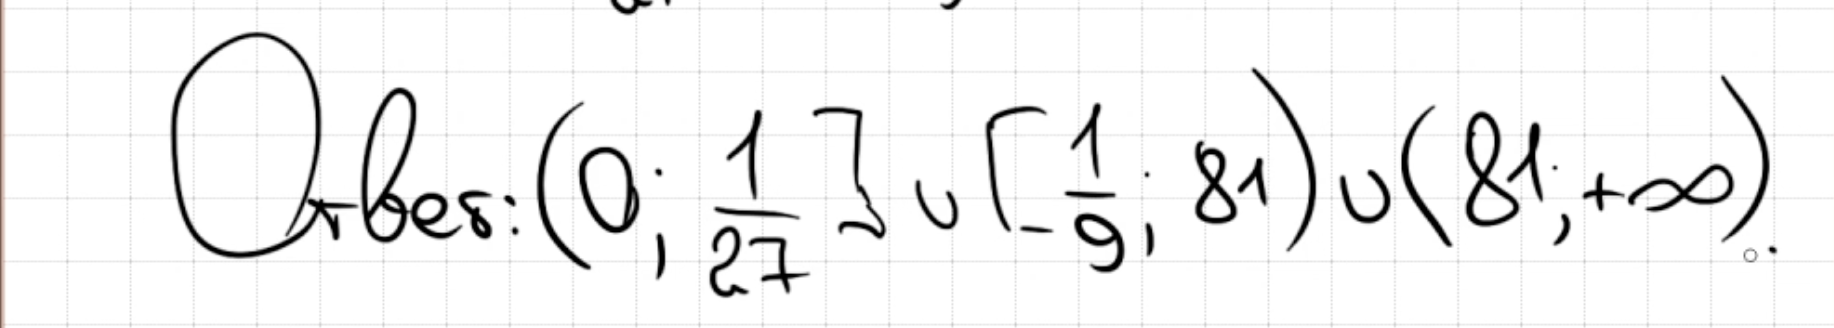 Ответ: (0; 1/27] ∪ [1/9; 81) ∪ (81; +∞).